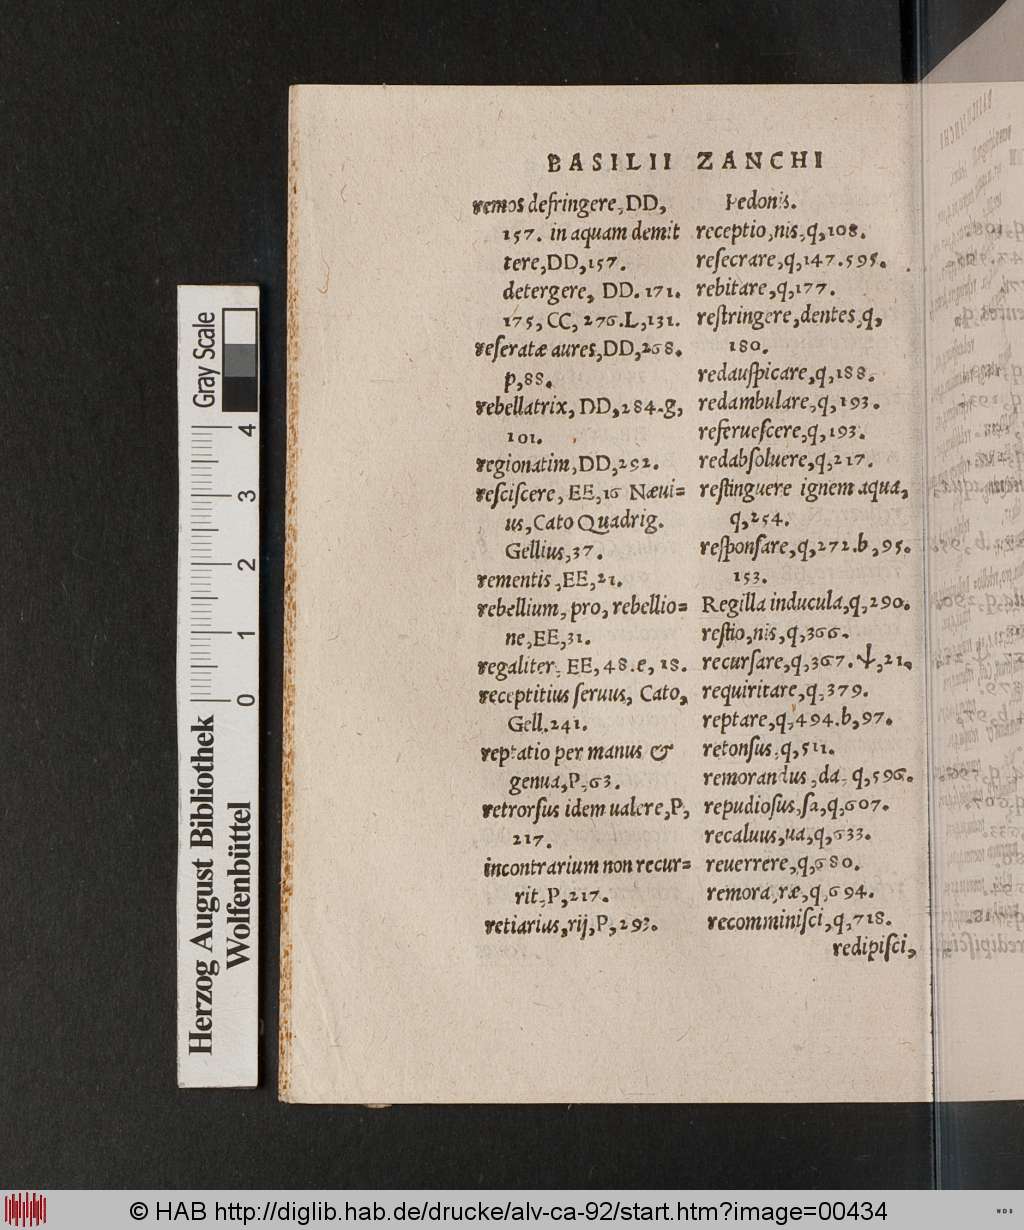 BASILII ZANCHI
remos defringere, DD,
157. in aquam demit
tere, DD, 157.
detergere, DD. 171.
175, CC, 276. L, 131.
reſeratæ aures, DD, 268.
p, 88.
rebellatrix, DD, 284. g,
101.
regionatim, DD, 292.
reſciſcere, EE, 16 Næui=
us, Cato Quadrig.
Gellius, 37.
rementis, EE, 21.
rebellium, pro, rebellio=
ne, EE, 31.
regaliter, EE, 48. e, 18.
receptitius ſeruus, Cato,
Gell. 241.
reptatio per manus &
genua, P, 63.
retrorſus idem ualere, P,
217.
incontrarium non recur=
rit, P, 217.
retiarius, rij, P, 293.
Pedonis.
receptio, nis, q, 108.
reſecrare, q, 147. 595.
rebitare, q, 177.
reſtringere, dentes, q,
180.
redauſpicare, q, 188.
redambulare, q, 193.
referueſcere, q, 193.
redabſoluere, q, 217.
reſtinguere ignem aqua,
q, 254.
reſponſare, q, 272. b, 95.
153.
Regilla inducula, q, 290.
reſtio, nis, q, 366.
recurſare, q, 367. 21.
requiritare, q, 379.
reptare, q, 494. b, 97.
retonſus, q, 511.
remorandus, da, q, 596.
repudioſus, ſa, q, 607.
recaluus, ua, q, 633.
reuerrere, q, 680.
remora, ræ, q, 694.
recomminiſci, q, 718.
redipiſci,
Gray Scale
4
3
2
1
0
Herzog August Bibliothek
Wolfenbüttel
© HAB http://diglib.hab.de/drucke/alv-ca-92/start.htm?image=00434